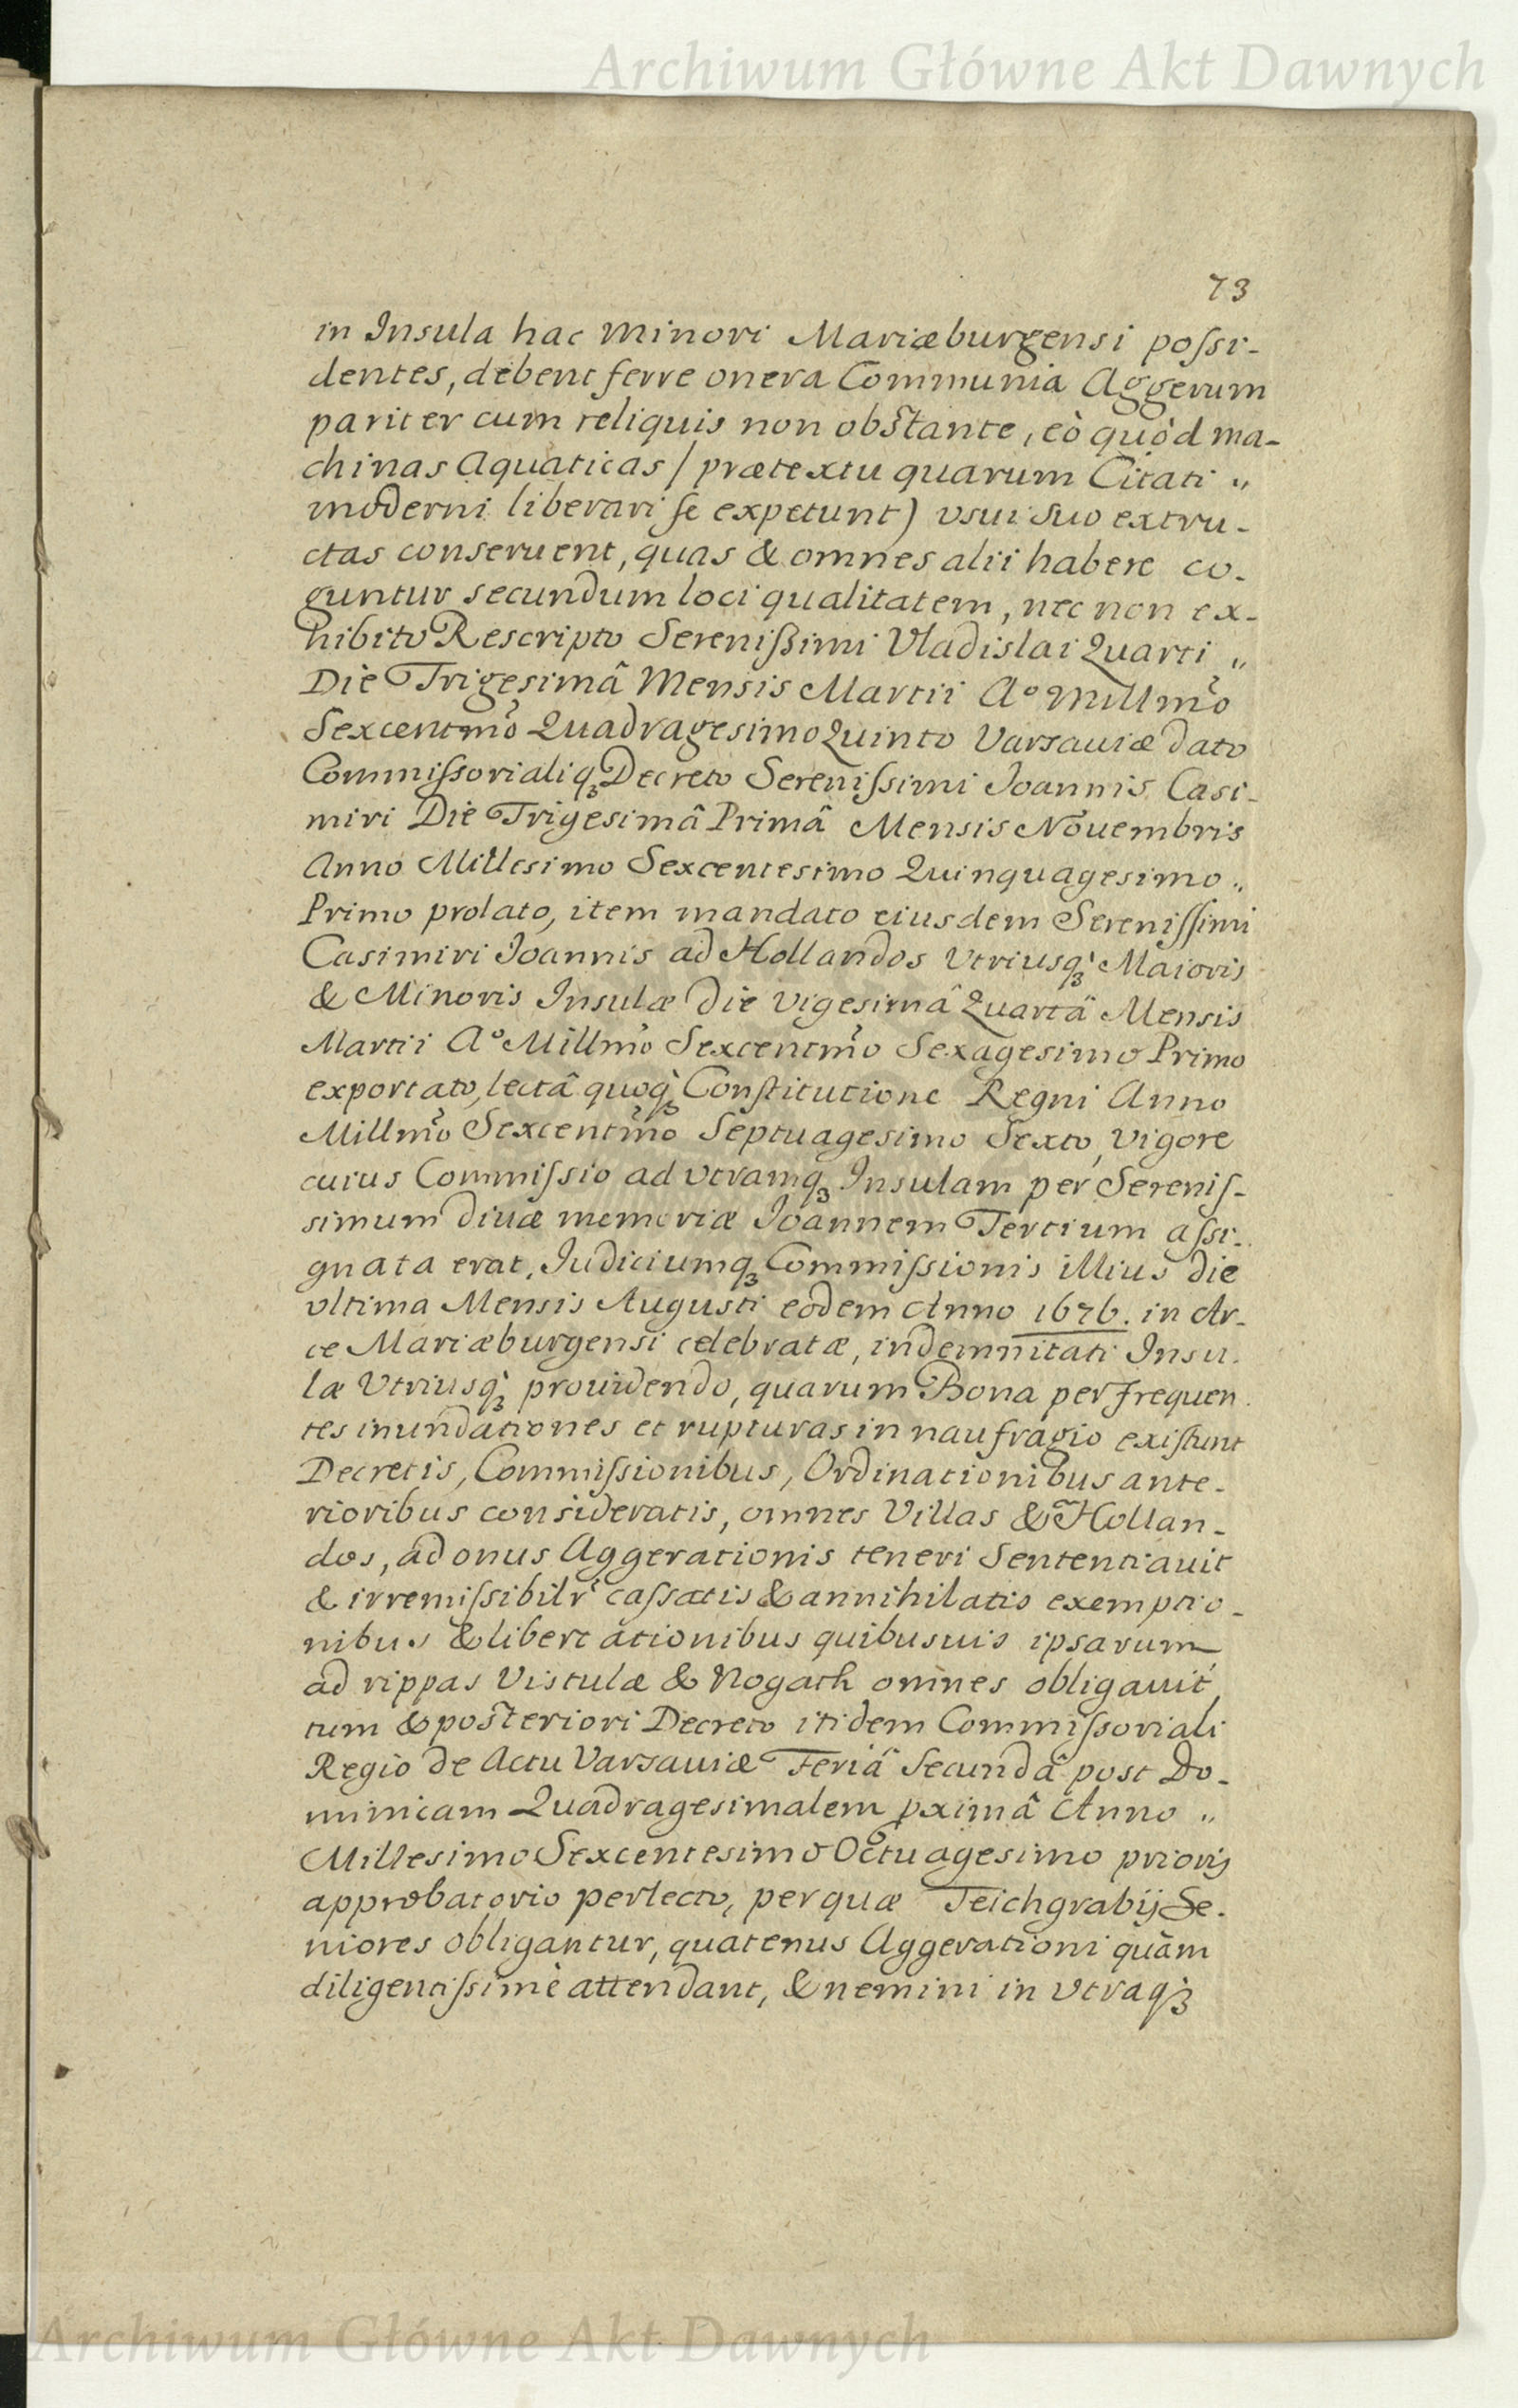 Archiwum Główne Akt Dawnych
73
in Insula hac Minori Mariæburgensi possi-
dentes, debent ferre onera Communia Aggerum
pariter cum reliquis non obstante, eò quòd ma-
chinas Aquaticas / prætextu quarum Citati „
moderni liberari se expetunt) vsui suo extru-
ctas conseruent, quas & omnes alii habere co-
guntur secundum loci qualitatem, nec non ex-
hibito Rescripto Serenißimi Vladislai Quarti „
Die Trigesimâ Mensis Martii Aº Millm̃o
Sexcentm̃o Quadragesimo Quinto Varsauiæ dato
Commissorialiqꝫ Decreto Serenissimi Ioannis Casi-
miri Die Trigesimâ Primâ Mensis Nouembris
Anno Millesimo Sexcentesimo Quinquagesimo „
Primo prolato, item mandato eiusdem Serenissimi
Casimiri Ioannis ad Hollandos Vtriusqꝫ Maioris
& Minoris Insulæ die vigesimâ Quartâ Mensis
Martii Aº Millm̃o Sexcentm̃o Sexagesimo Primo
exportato, lectâ quoqꝫ Constitutione Regni Anno
Millm̃o Sexcentm̃o Septuagesimo Sexto, vigore
cuius Commissio ad vtramqꝫ Insulam per Serenis-
simum diuæ memoriæ Ioannem Tertium assi-
gnata erat, Iudiciumqꝫ Commissionis illius die
vltima Mensis Augusti eodem Anno 1676. in Ar-
ce Mariæburgensi celebratæ, indemnitati Insu-
læ Vtriusqꝫ prouidendo, quarum Bona per frequen-
tes inundationes et rupturas in naufragio existunt
Decretis, Commissionibus, Ordinationibus ante-
rioribus consideratis, omnes Villas & Hollan-
dos, ad onus Aggerationis teneri Sententiauit
& irremissibilr̃ cassatis & annihilatis exemptio-
nibus & libertationibus quibusuis ipsarum
ad rippas Vistulæ & Nogath omnes obligauit,
tum & posteriori Decreto itidem Commissoriali
Regio de Actu Varsauiæ Feriâ Secundâ post Do-
minicam Quadragesimalem pximâ Anno „
Millesimo Sexcentesimo Octuagesimo prioris
approbatorio perlecto, per quæ Teichgrabij Se-
niores obligantur, quatenus Aggerationi quàm
diligentissimè attendant, & nemini in vtraqꝫ
Archiwum Główne Akt Dawnych